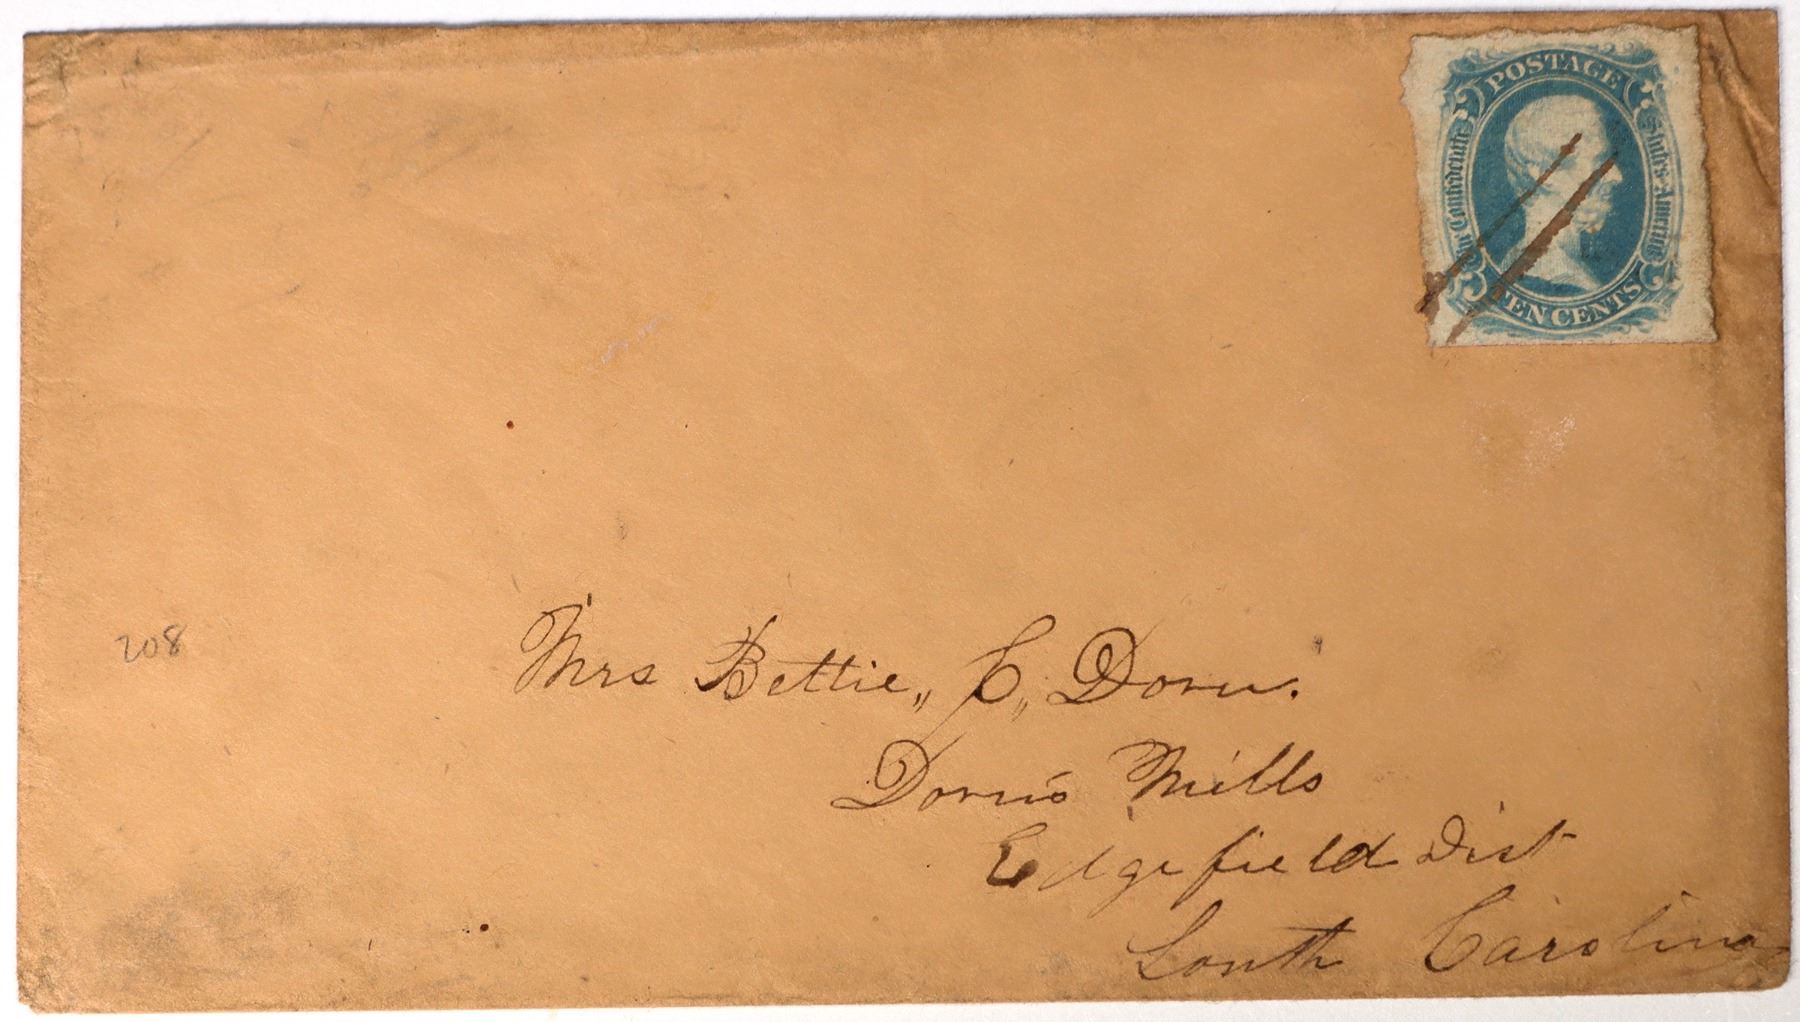 POSTAGE
The Confederate States of America
TEN CENTS
208
Mrs Bettie,, C,, Dorn.
Dorn's Mills
Edgefield Dist
South Carolina